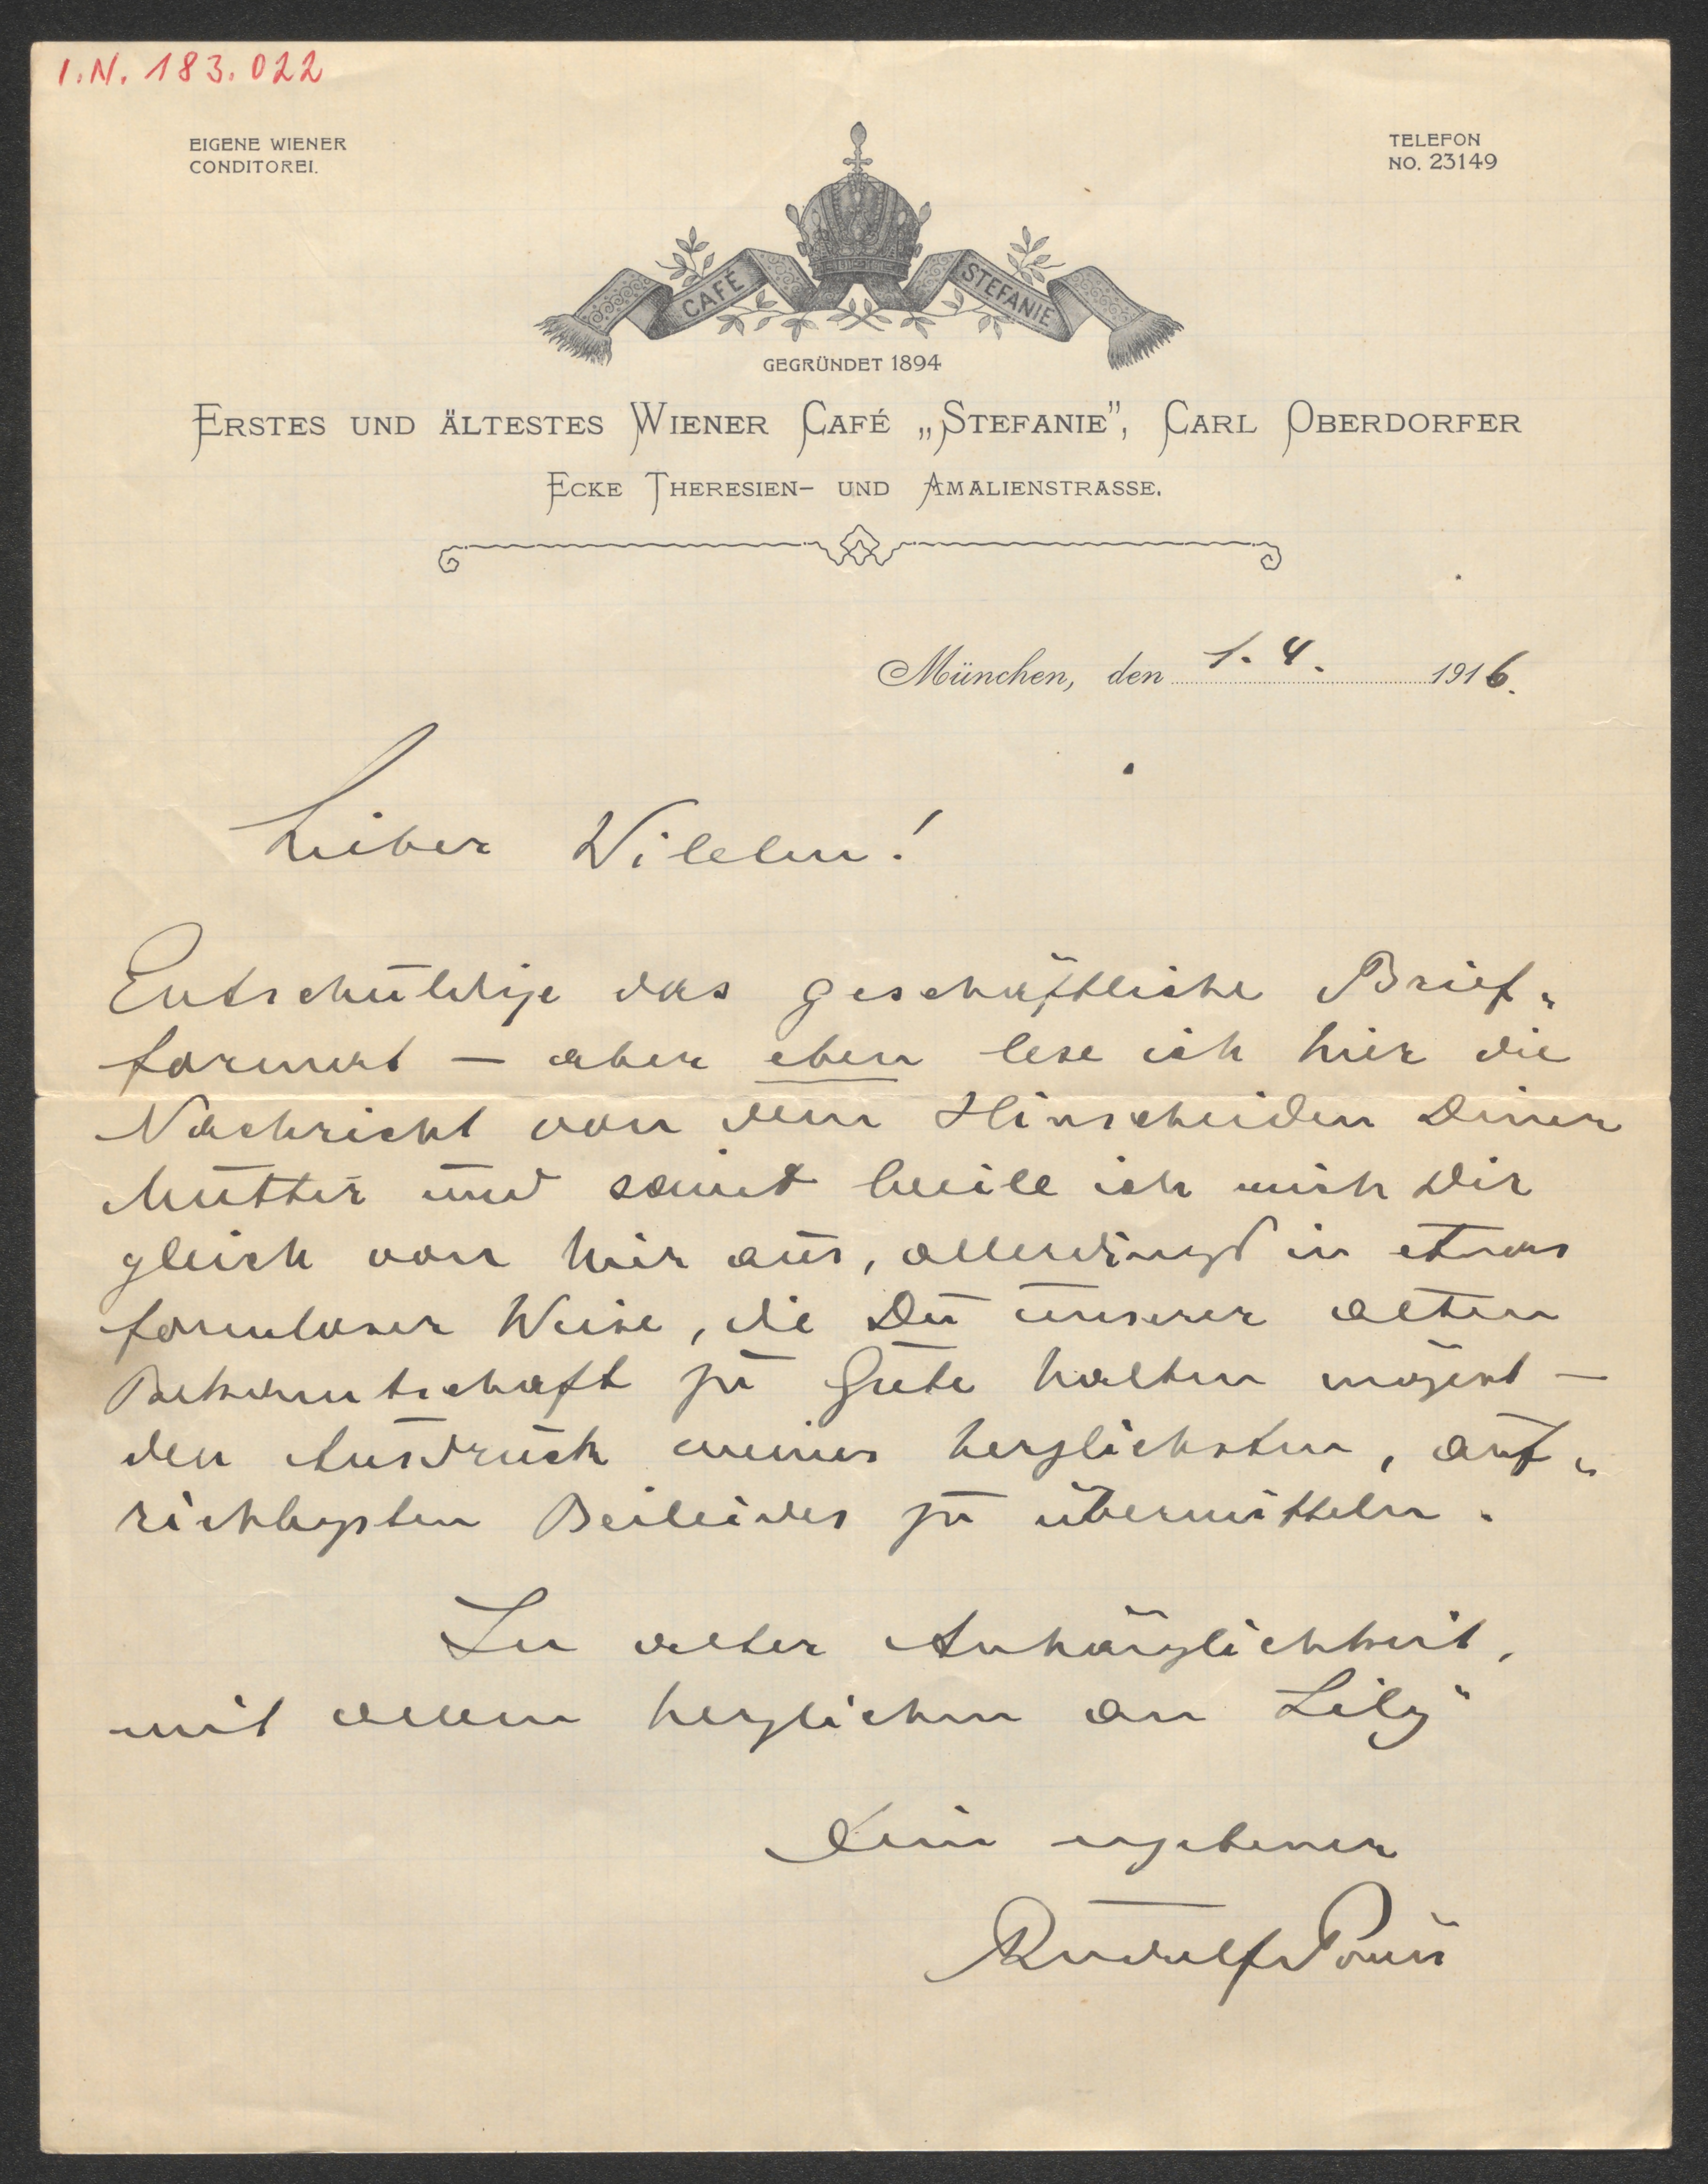 I.N. 183.022
EIGENE WIENER
CONDITOREI.
TELEFON
NO. 23149
CAFÉ STEFANIE
GEGRÜNDET 1894
ERSTES UND ÄLTESTES WIENER CAFÉ „STEFANIE”, CARL OBERDORFER
ECKE THERESIEN- UND AMALIENSTRASSE.
München, den 1. 4. 1916.
Lieber Wilelm!
Entschuldige das geschäftliche Brief„
format — aber eben lese ich hier die
Nachricht von dem Hinscheiden Deiner
Mutter und somit beeile ich mich Dir
gleich von hier aus, allerdings in etwas
formloser Weise, die Du unserer alten
Bekanntschaft zu Gute halten mögest —
den Ausdruck meines herzlichsten, auf„
richtigsten Beileides zu übermitteln.
In alter Anhänglichkeit,
mit allem herzlichen an Lily
Dein ergebener
Rudolf